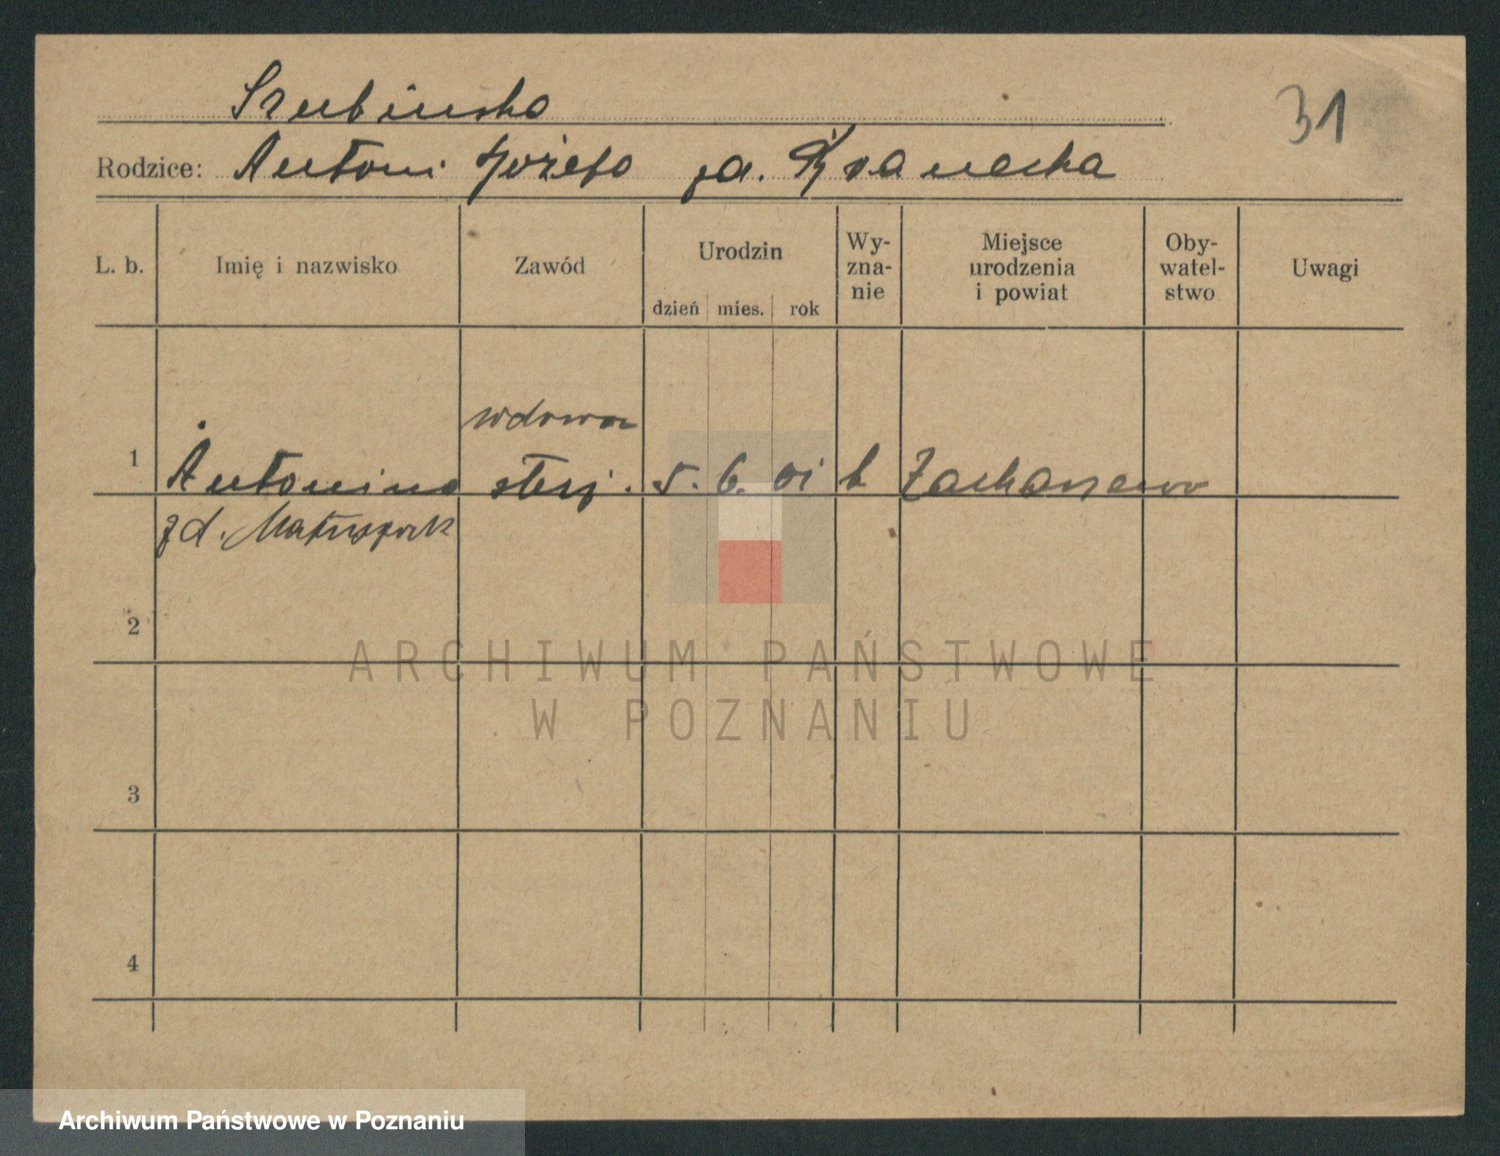 Szubińska
31
Rodzice: Antoni Józefa zd.
L. b. Imię i nazwisko Zawód Urodzin dzień mies. rok Wy-zna-nie Miejsce urodzenia i powiat Oby-watel-stwo Uwagi
wdowa
1 Antonina 5. 6. 01
zd. Matuszczak
2
3
4
ARCHIWUM PAŃSTWOWE
W POZNANIU
Archiwum Państwowe w Poznaniu